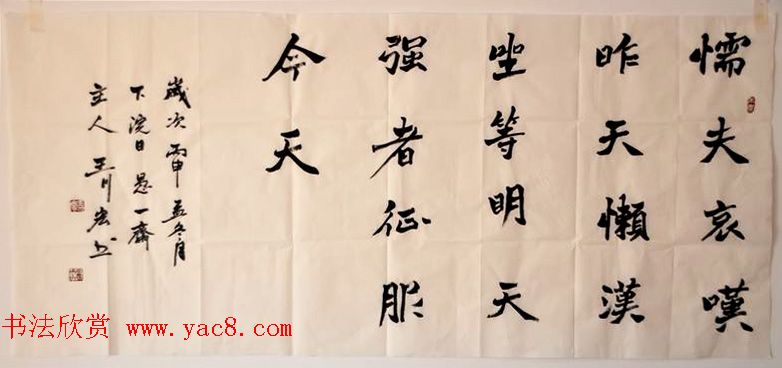 懦夫哀嘆
昨天懶漢
坐等明天
强者征服
今天
歲次丙申孟冬月
下浣日愚一齋
主人王川宏书
书法欣赏 www.yac8.com